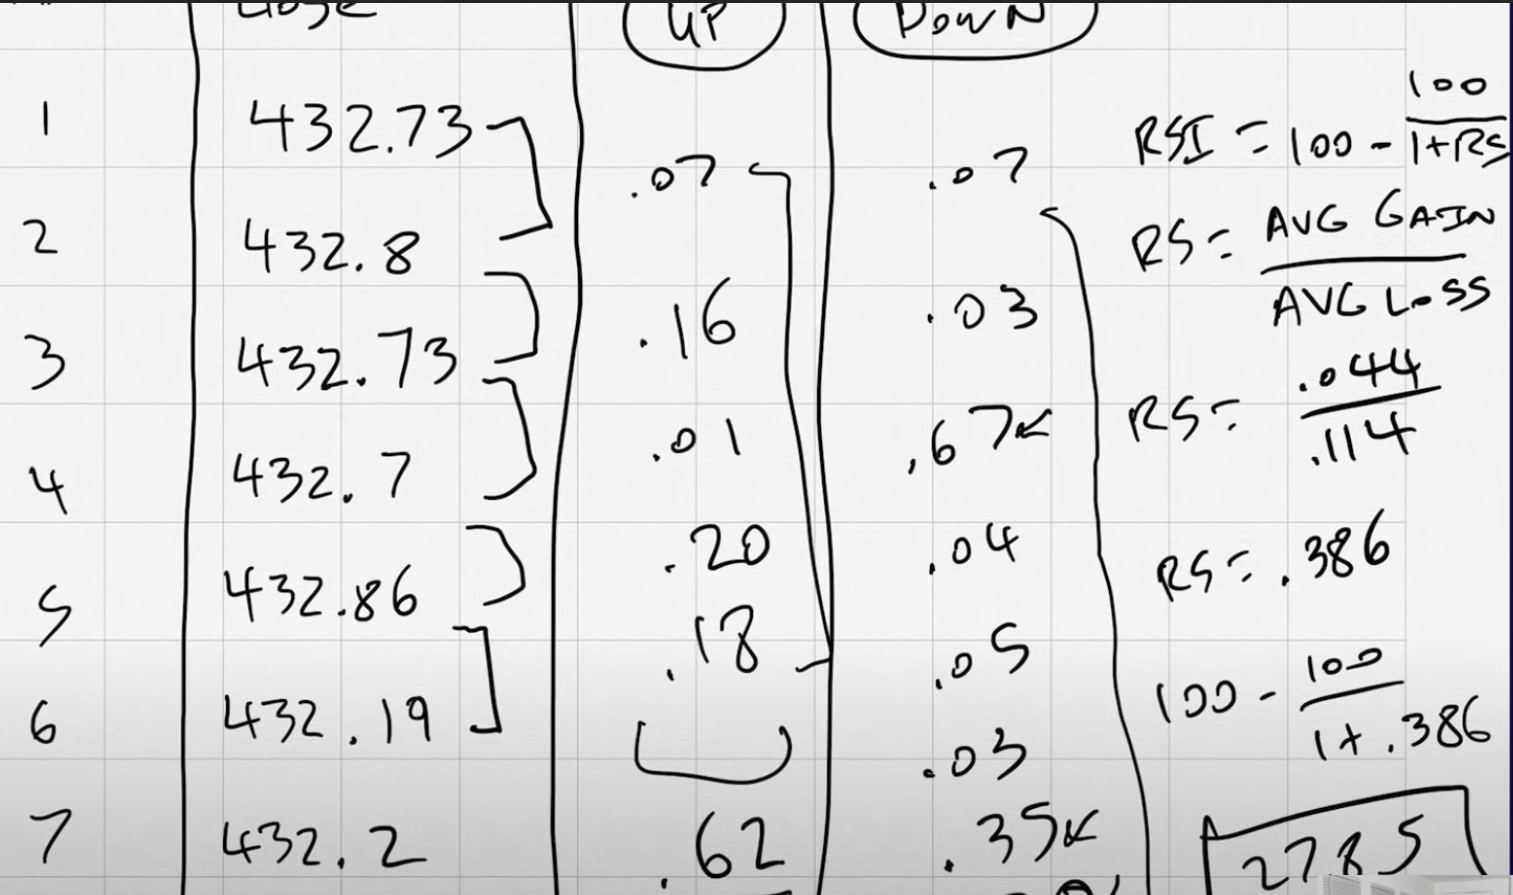 UP DOWN
1 432.73
2 432.8
3 432.73
4 432.7
5 432.86
6 432.19
7 432.2
.07
.16
.01
.20
.18
.62
.07
.03
.67
.04
.05
.03
.35
RSI = 100 - 100
1+RS
RS = AVG GAIN
AVG LOSS
RS = .044
.114
RS = .386
100 - 100
1+ .386
27.85